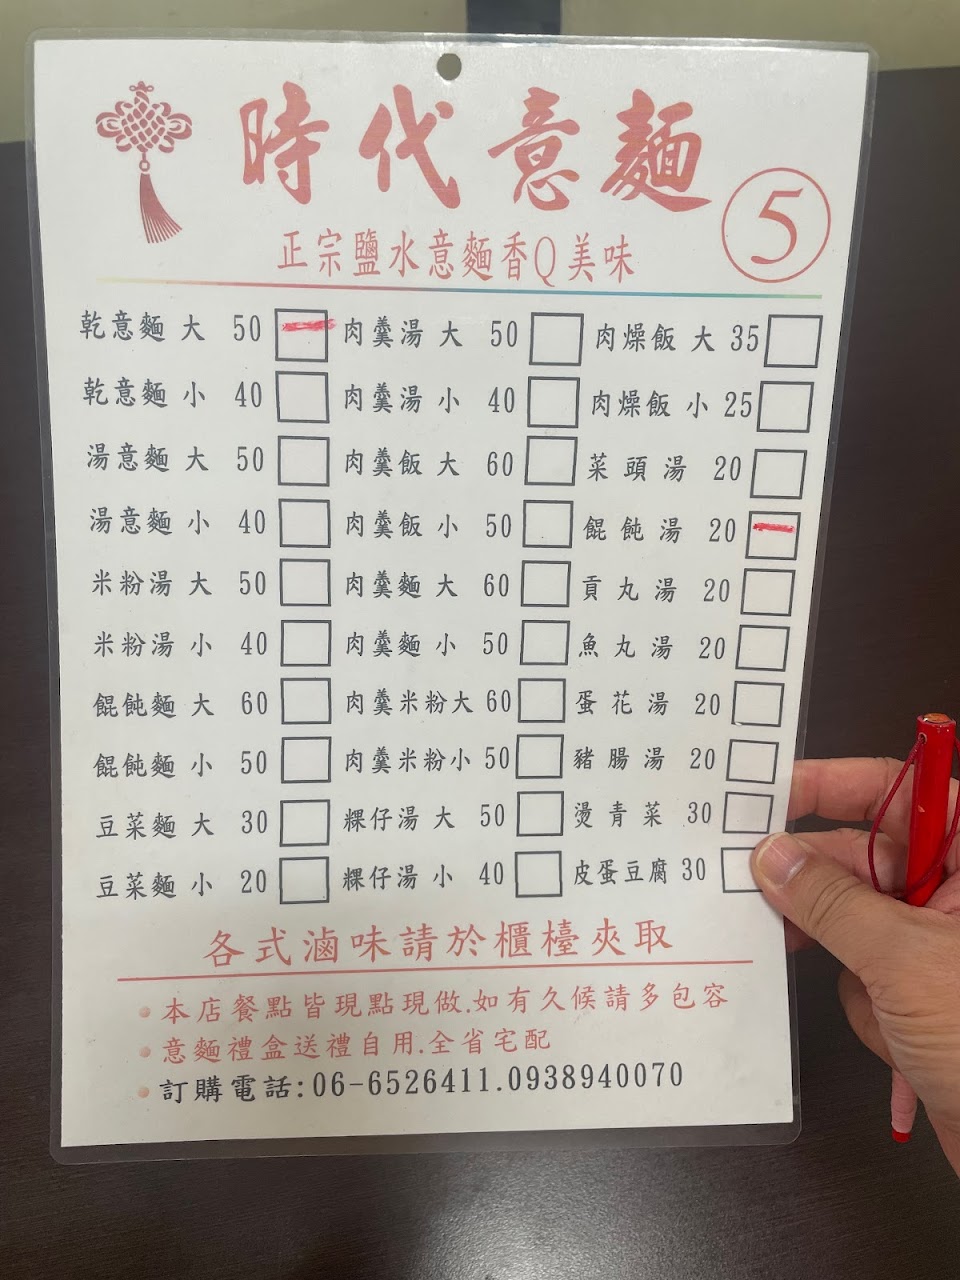 時代意麵
5
正宗鹽水意麵香Q美味
乾意麵 大 50 肉羹湯 大 50 肉燥飯 大 35
乾意麵 小 40 肉羹湯 小 40 肉燥飯 小 25
湯意麵 大 50 肉羹飯 大 60 菜頭湯 20
湯意麵 小 40 肉羹飯 小 50 餛飩湯 20
米粉湯 大 50 肉羹麵 大 60 貢丸湯 20
米粉湯 小 40 肉羹麵 小 50 魚丸湯 20
餛飩麵 大 60 肉羹米粉大 60 蛋花湯 20
餛飩麵 小 50 肉羹米粉小 50 豬腸湯 20
豆菜麵 大 30 粿仔湯 大 50 燙青菜 30
豆菜麵 小 20 粿仔湯 小 40 皮蛋豆腐 30
各式滷味請於櫃檯夾取
本店餐點皆現點現做.如有久候請多包容
意麵禮盒送禮自用.全省宅配
訂購電話:06-6526411.0938940070